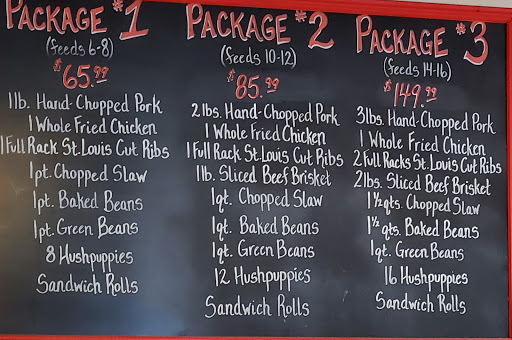 PACKAGE #1
(feeds 6-8)
$65.99
1lb. Hand-Chopped Pork
1 Whole Fried Chicken
1 Full Rack St. Louis Cut Ribs
1pt. Chopped Slaw
1pt. Baked Beans
1pt. Green Beans
8 Hushpuppies
Sandwich Rolls
PACKAGE #2
(feeds 10-12)
$85.99
2 lbs. Hand-Chopped Pork
1 Whole Fried Chicken
1 Full Rack St. Louis Cut Ribs
1lb. Sliced Beef Brisket
1qt. Chopped Slaw
1qt. Baked Beans
1qt. Green Beans
12 Hushpuppies
Sandwich Rolls
PACKAGE #3
(feeds 14-16)
$149.99
3lbs. Hand-Chopped Pork
1 Whole Fried Chicken
2 Full Racks St. Louis Cut Ribs
2lbs. Sliced Beef Brisket
1½ qts. Chopped Slaw
1½ qts. Baked Beans
1qt. Green Beans
16 Hushpuppies
Sandwich Rolls